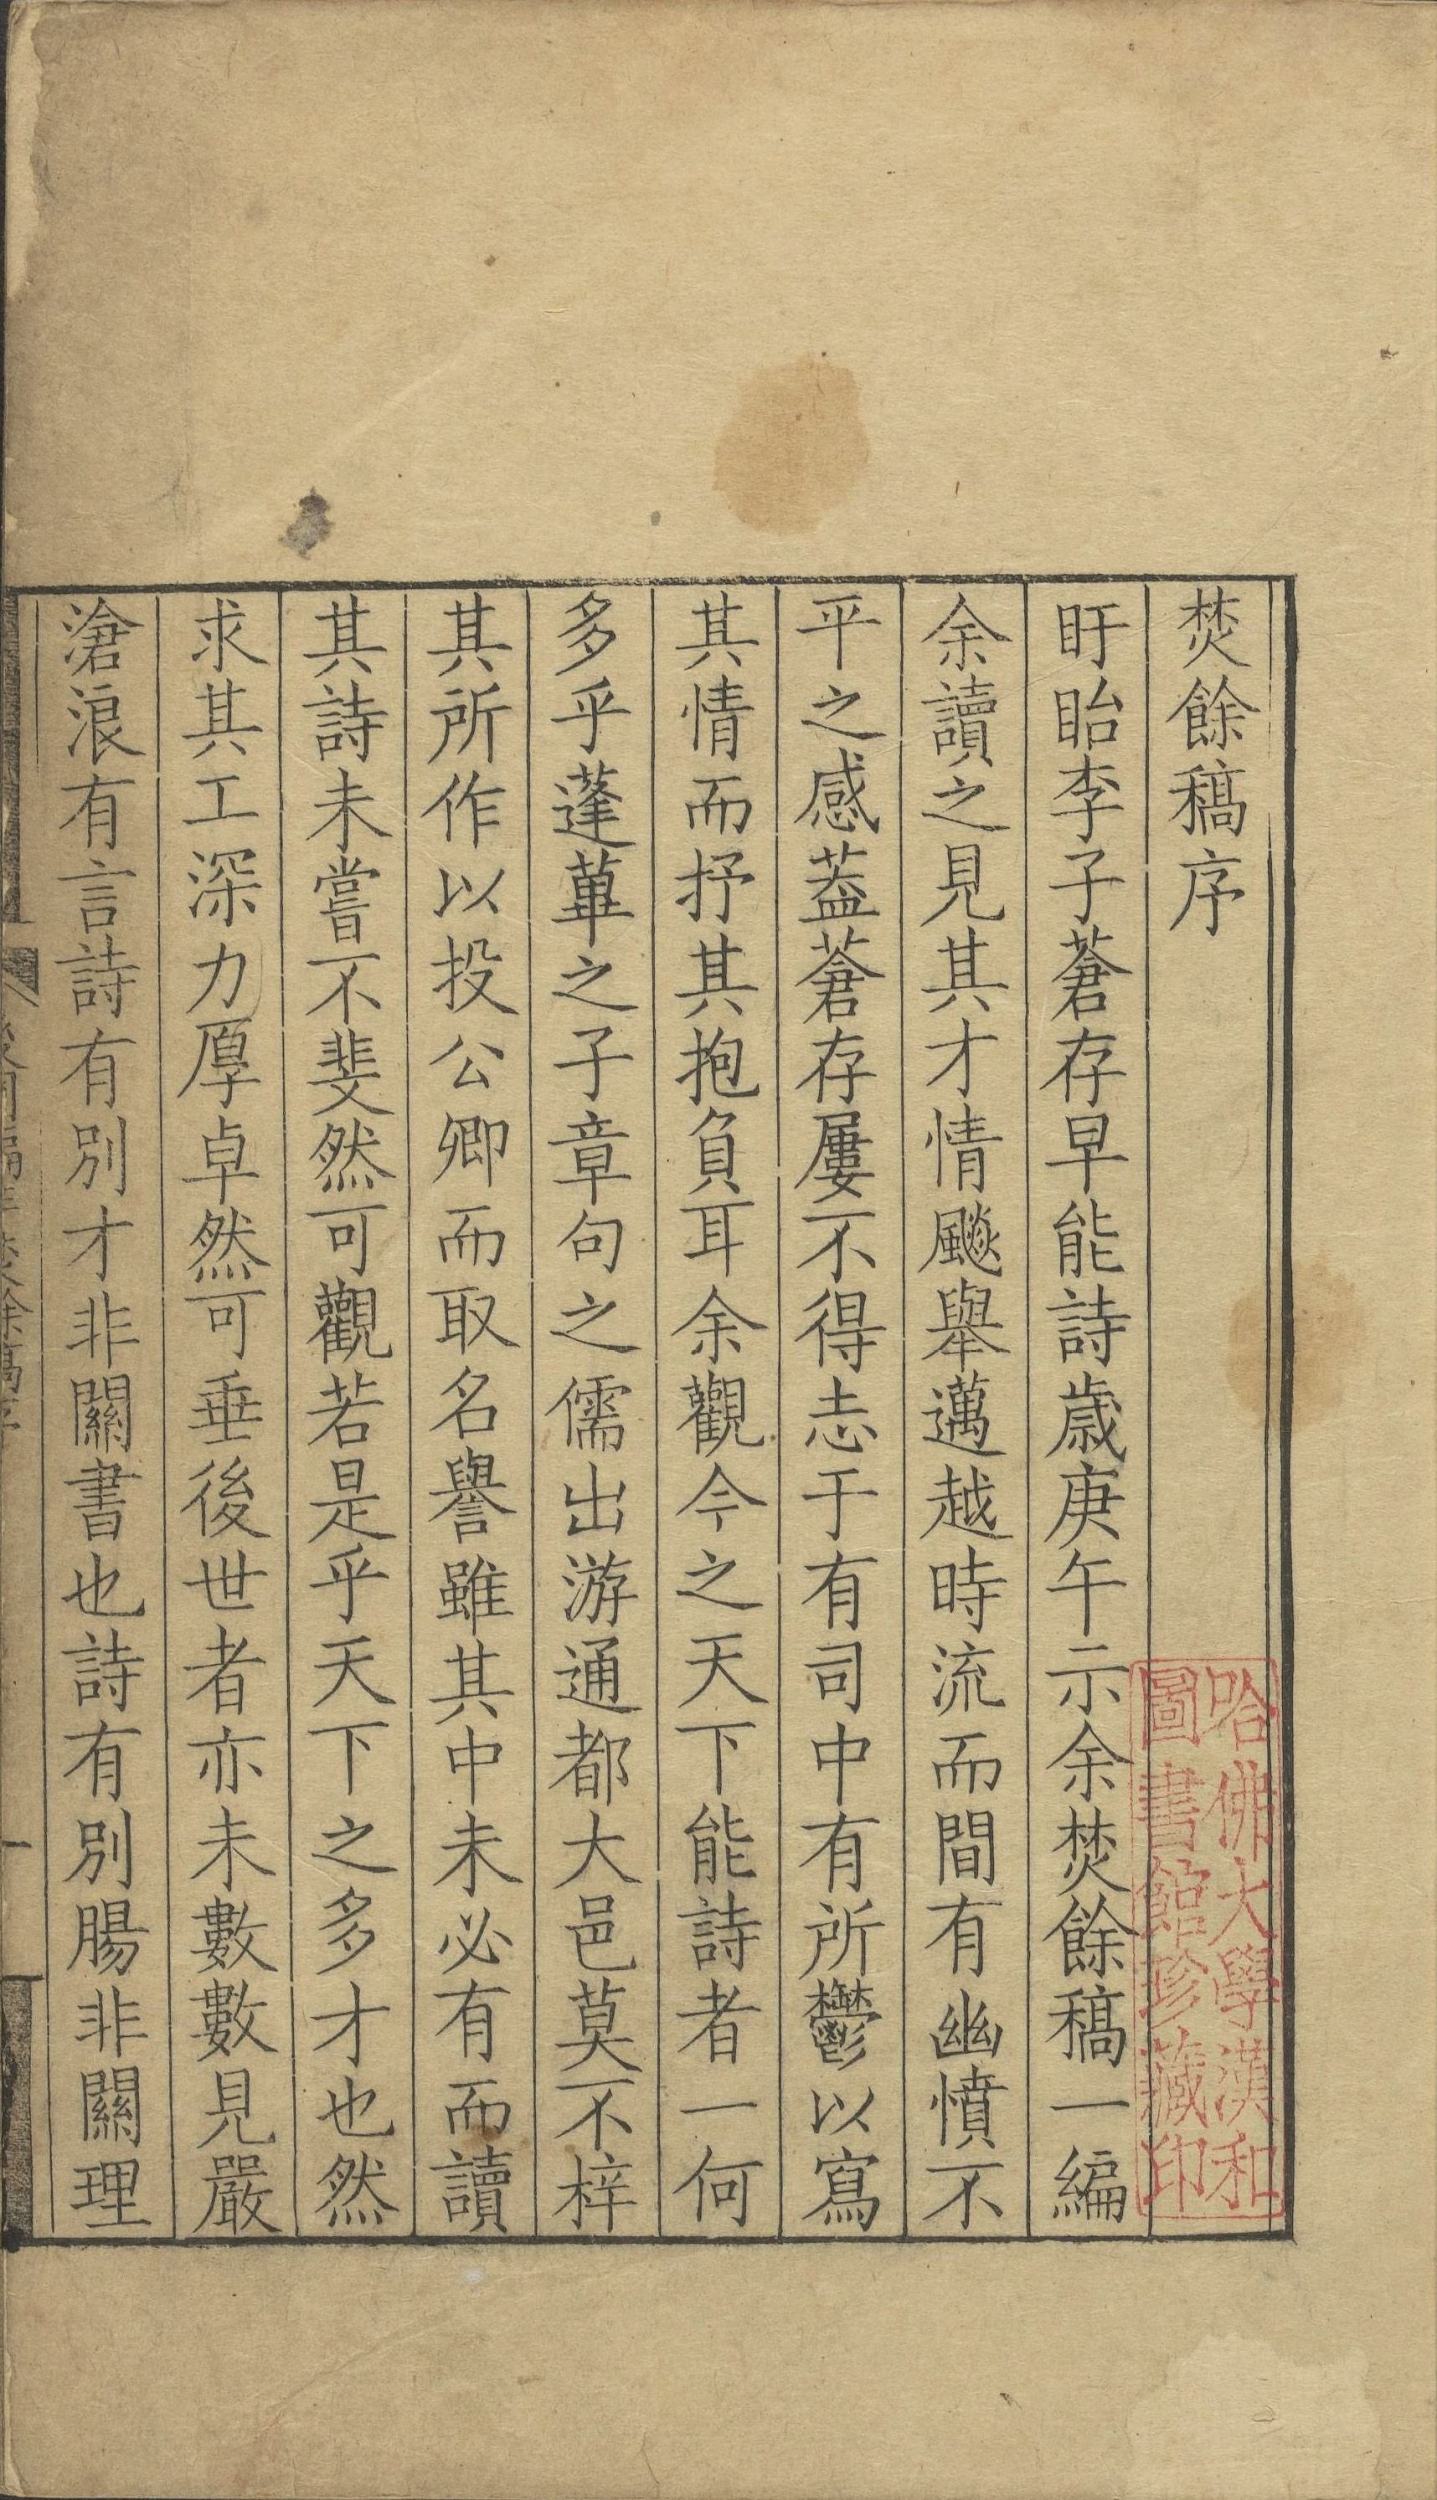 焚餘稿序
盱眙李子蒼存早能詩歲庚午示余焚餘稿一編
余讀之見其才情颷舉邁越時流而間有幽憤不
平之感葢蒼存屢不得志于有司中有所鬱以寫
其情而抒其抱負耳余觀今之天下能詩者一何
多乎蓬蓽之子章句之儒出游通都大邑莫不梓
其所作以投公卿而取名譽雖其中未必有而讀
其詩未嘗不斐然可觀若是乎天下之多才也然
求其工深力厚卓然可垂後世者亦未數數見嚴
滄浪有言詩有別才非關書也詩有別腸非關理
哈佛大學漢和
圖書館珍藏印